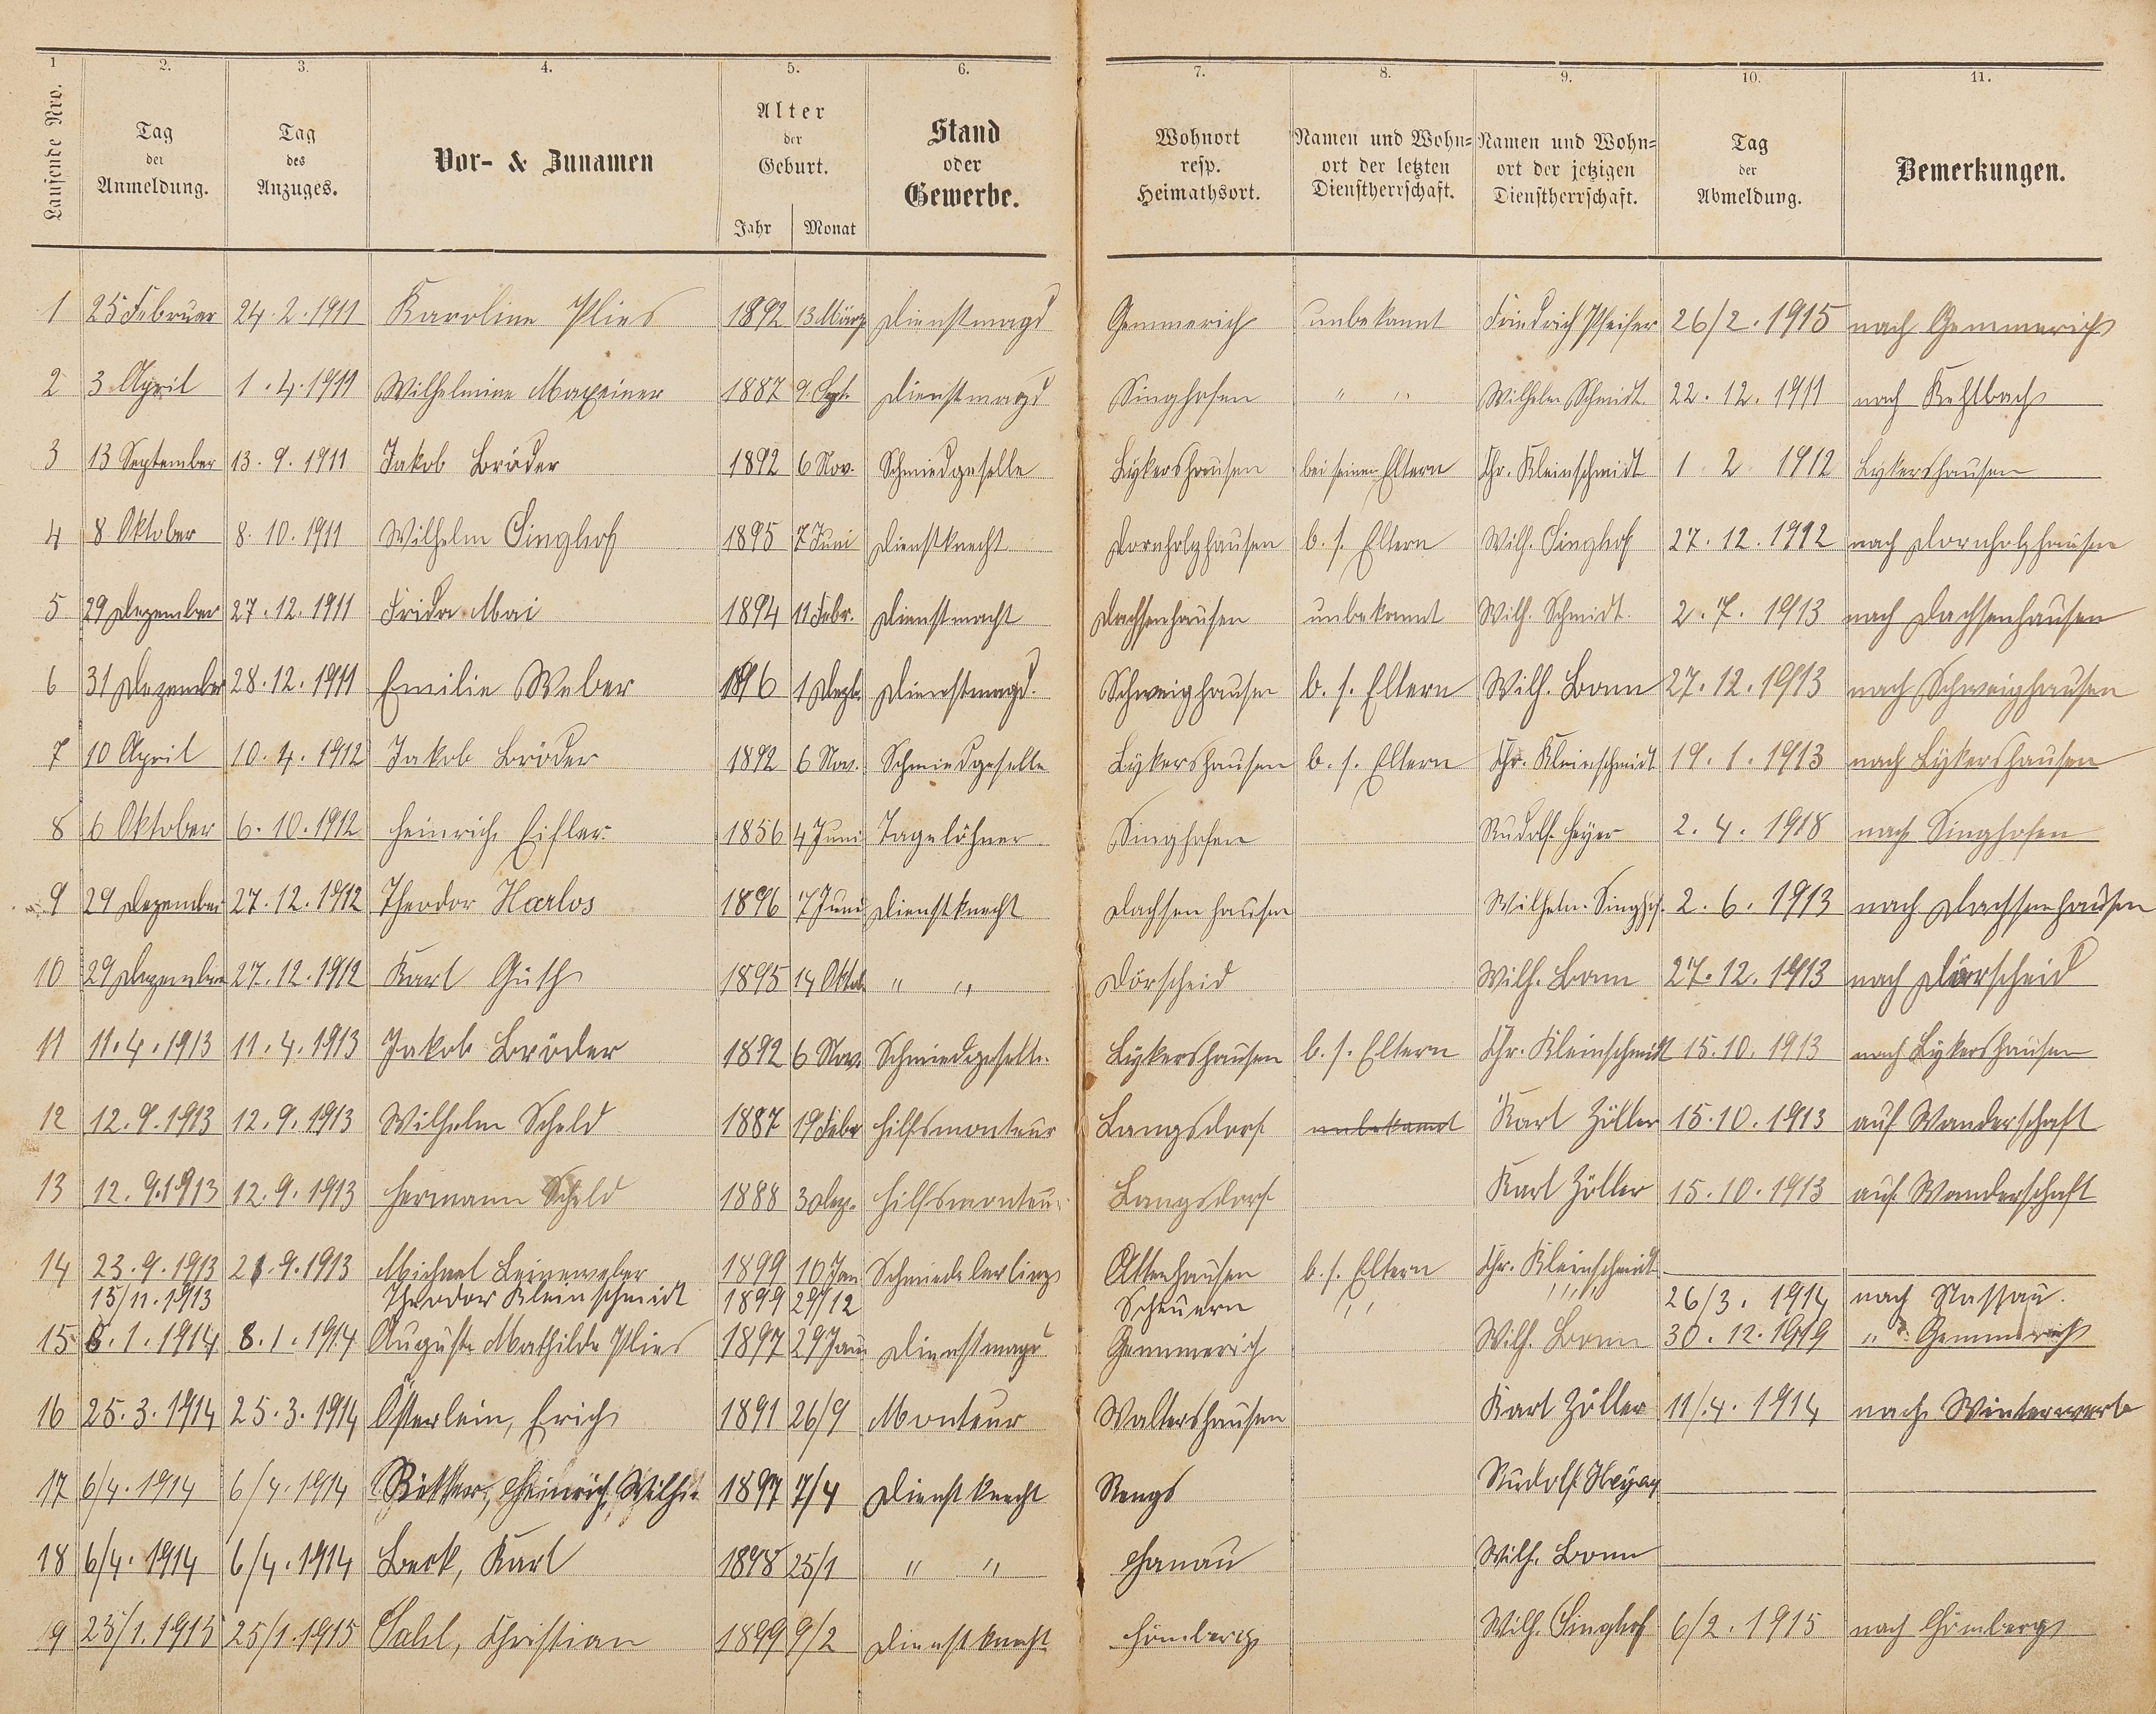 1 2. 3. 4. 5. 6. 7. 8. 9. 10. 11.
Laufende Nro.
Tag der Anmeldung.
Tag des Anzuges.
Vor- & Zunamen
Alter der Geburt.
Jahr Monat
Stand oder Gewerbe.
Wohnort resp. Heimathsort.
Namen und Wohn= ort der letzten Dienstherrschaft.
Namen und Wohn= ort der jetzigen Dienstherrschaft.
Tag der Abmeldung.
Bemerkungen.
1 25 Februar 24.2.1911 Karoline Plies 1892 13. März Dienstmagd Gemmerich unbekannt Friedrich Pfeifer 26/2.1915 nach Gemmerich
2 3 April 1.4.1911 Wilhelmine Maxeiner 1887 9. Sept. Dienstmagd Singhofen " " Wilhelm Schmidt. 22.12.1911 nach Kehlbach
3 13 September 13.9.1911 Jakob Bröder 1892 6 Nov. Schmiedgeselle Lykershausen bei seinen Eltern Chr. Kleinschmidt 1 2 1912 Lykershausen
4 8 Oktober 8.10.1911 Wilhelm Singhof 1895 7 Juni Dienstknecht Dornholzhausen b. s. Eltern Wilh. Singhof 27.12.1912 nach Dornholzhausen
5 29 Dezember 27.12.1911 Frida Mai 1894 11 Febr. Dienstmacht Dachsenhausen unbekannt Wilh. Schmidt. 2.7.1913 nach Dachsenhausen
6 31 Dezember 28.12.1911 Emilie Weber 1896 1 Dienstmagd. Schweighausen b. s. Eltern Wilh. Bonn 27.12.1913 nach Schweighausen
7 10 April 10.4.1912 Jakob Bröder 1892 6 Nov. Schmiedgeselle Lykershausen b. s. Eltern Chr. Kleinschmidt 19.1.1913 nach Lykershausen
8 6 Oktober 6.10.1912 Heinrich Eifler 1856 4 Juni Tagelöhner Singhofen Rudolf Heyer 2.4.1918 nach Singhofen
9 29 Dezember 27.12.1912 Theodor Harlos 1896 7 Juni Dienstknecht Dachsenhausen Wilhelm Singhof. 2.6.1913 nach Dachsenhausen
10 29 Dezember 27.12.1912 Karl Güth 1895 14 Oktob. " " Dörscheid Wilh. Bonn 27.12.1913 nach Dörscheid
11 11.4.1913 11.4.1913 Jakob Bröder 1892 6 Nov. Schmiedgeselle. Lykershausen b. s. Eltern Chr. Kleinschmidt 15.10.1913 nach Lykershausen
12 12.9.1913 12.9.1913 Wilhelm Scheld 1887 19 Febr Hilfsmonteur Langsdorf unbekannt Karl Zöller 15.10.1913 auf Wanderschaft
13 12.9.1913 12.9.1913 Hermann Scheld 1888 3 Dez. Hilfsmonteur Langsdorf Karl Zöller 15.10.1913 auf Wanderschaft
14 23.9.1913 21.9.1913 Michael Leineweber 1899 10 Jan Schmiedelerling Attenhausen b. s. Eltern Chr. Kleinschmidt
15/11.1913 Theodor Kleinschmidt 1899 29/12 Scheuern " " " " 26/3.1914 nach Nassau.
15 8.1.1914 8.1.1914 Auguste Mathilde Plies 1897 29 Jan Dienstmagd Gemmerich Wilh. Bonn 30.12.1919 " Gemmerich
16 25.3.1914 25.3.1914 Österlein, Erich 1891 26/9 Monteur Waltershausen Karl Zöller 11/.4.1914 nach Winterwerb
17 6/4.1914 6/4.1914 Heinrich, 1897 7/4 Dienstknecht Rengs Rudolf Heyer
18 6/4.1914 6/4.1914 Beck, Karl 1898 25/1 " " Hanau Wilh. Bonn
19 25/1.1915 25/1.1915 Sahl, Christian 1899 9/2 Dienstknecht Hömberg Wilh. Singhof 6/2.1915 nach Hömberg